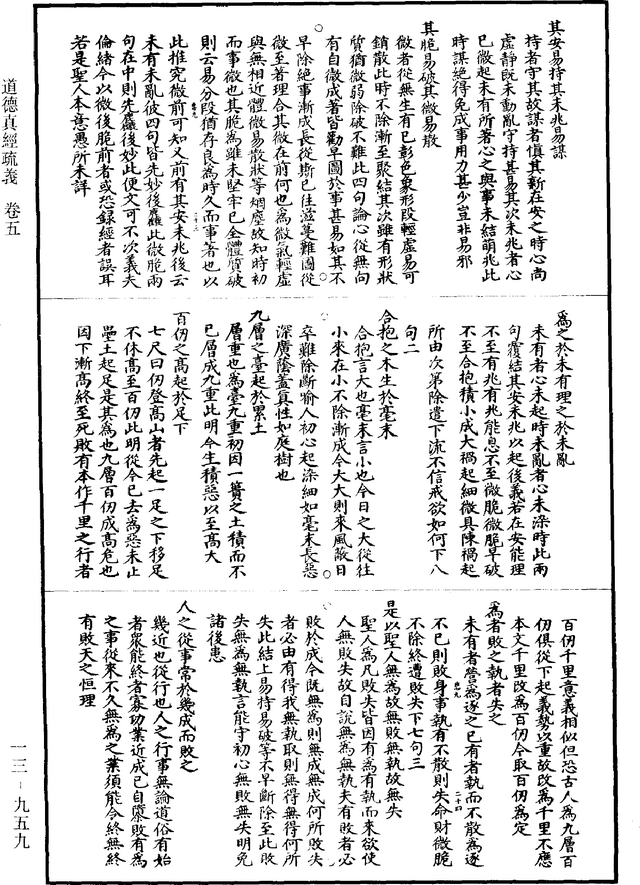 道德真經疏義　卷五
一三－九五九
其安易持其未兆易謀
持者守其故謀者慎其新在安之時心尚
虛靜既未動亂守持甚易其次未兆者心
已微起未有所著心之與事未結萌兆此
時謀絕得免成事用力甚少豈非易邪
其脆易破其微易散
微者從無生有已彰色象形段輕虛易可
銷散此時不除漸至聚結其次雖有形狀
質猶微弱除破不難此四句論心從無向
有自微成著皆勸早圖於事甚易如其不
早除絕事漸成長從斯已往滋蔓難圖從
微至著理合其微在前何也為微氣輕虛
與無相近體微易散狀等烟塵故知時初
而事微也其脆為雖未堅牢已全體質破
則云易分段猶存良為時久而事著也以
此推究微前可知又前有其安未兆後云
未有未亂彼四句皆先妙後麤此微脆兩
句在中則先麤後妙此便文可不次義夫
倫緒今以微後脆前者或恐錄經者誤耳
若是聖人本意愚所未詳
為之於未有理之於未亂
未有者心未起時未亂者心未染時此兩
句覆結其安未兆以起後義若在安能理
不至有兆有兆能息不至微脆微脆早破
不至合抱積小成大禍起細微具陳禍起
所由次第除遣下流不信戒欲如何下八
句二
合抱之木生於毫末
合抱言大也毫末言小也今日之大從往
小來在小不除漸成今大大則來風敵日
卒難除斷喻人初心起染細如毫末長惡
深廣蔭蓋真性如庭樹也
九層之臺起於累土
層重也為臺九重初因一簣之土積而不
已層成九重此明今生積惡以至高大
百仞之高起於足下
七尺曰仞登高山者先起一足之下移足
不休高至百仞此明從今已去為惡未止
壘土起足是其為也九層百仞成高危也
因下漸高終至死敗有本作千里之行者
百仞千里意義相似但恐古人為九層百
仞俱從下起義勢以重故改為千里不應
本文千里改為百仞今取百仞為定
為者敗之執者失之
未有者營為逐之已有者執而不散為逐
不已則敗身事執有不散則失命財微脆
不除終遭敗失下七句三
是以聖人無為故無敗無執故無失
聖人為凡敗失皆因有為有執而來欲使
人無敗失故自說無為無執夫有敗者必
敗於成今既無為則無成無成何所敗失
者必由有得我無執取則無得無得何所
失此結上易持易破等不早斷除至此敗
失無為無執言能守初心無敗無失明免
諸後患
人之從事常於幾成而敗之
幾近也從行也人之行事無論道俗有始
者眾能終者寡功業近成已自隳敗有為
之事從來不久無為之業須能令終無終
有敗天之恒理